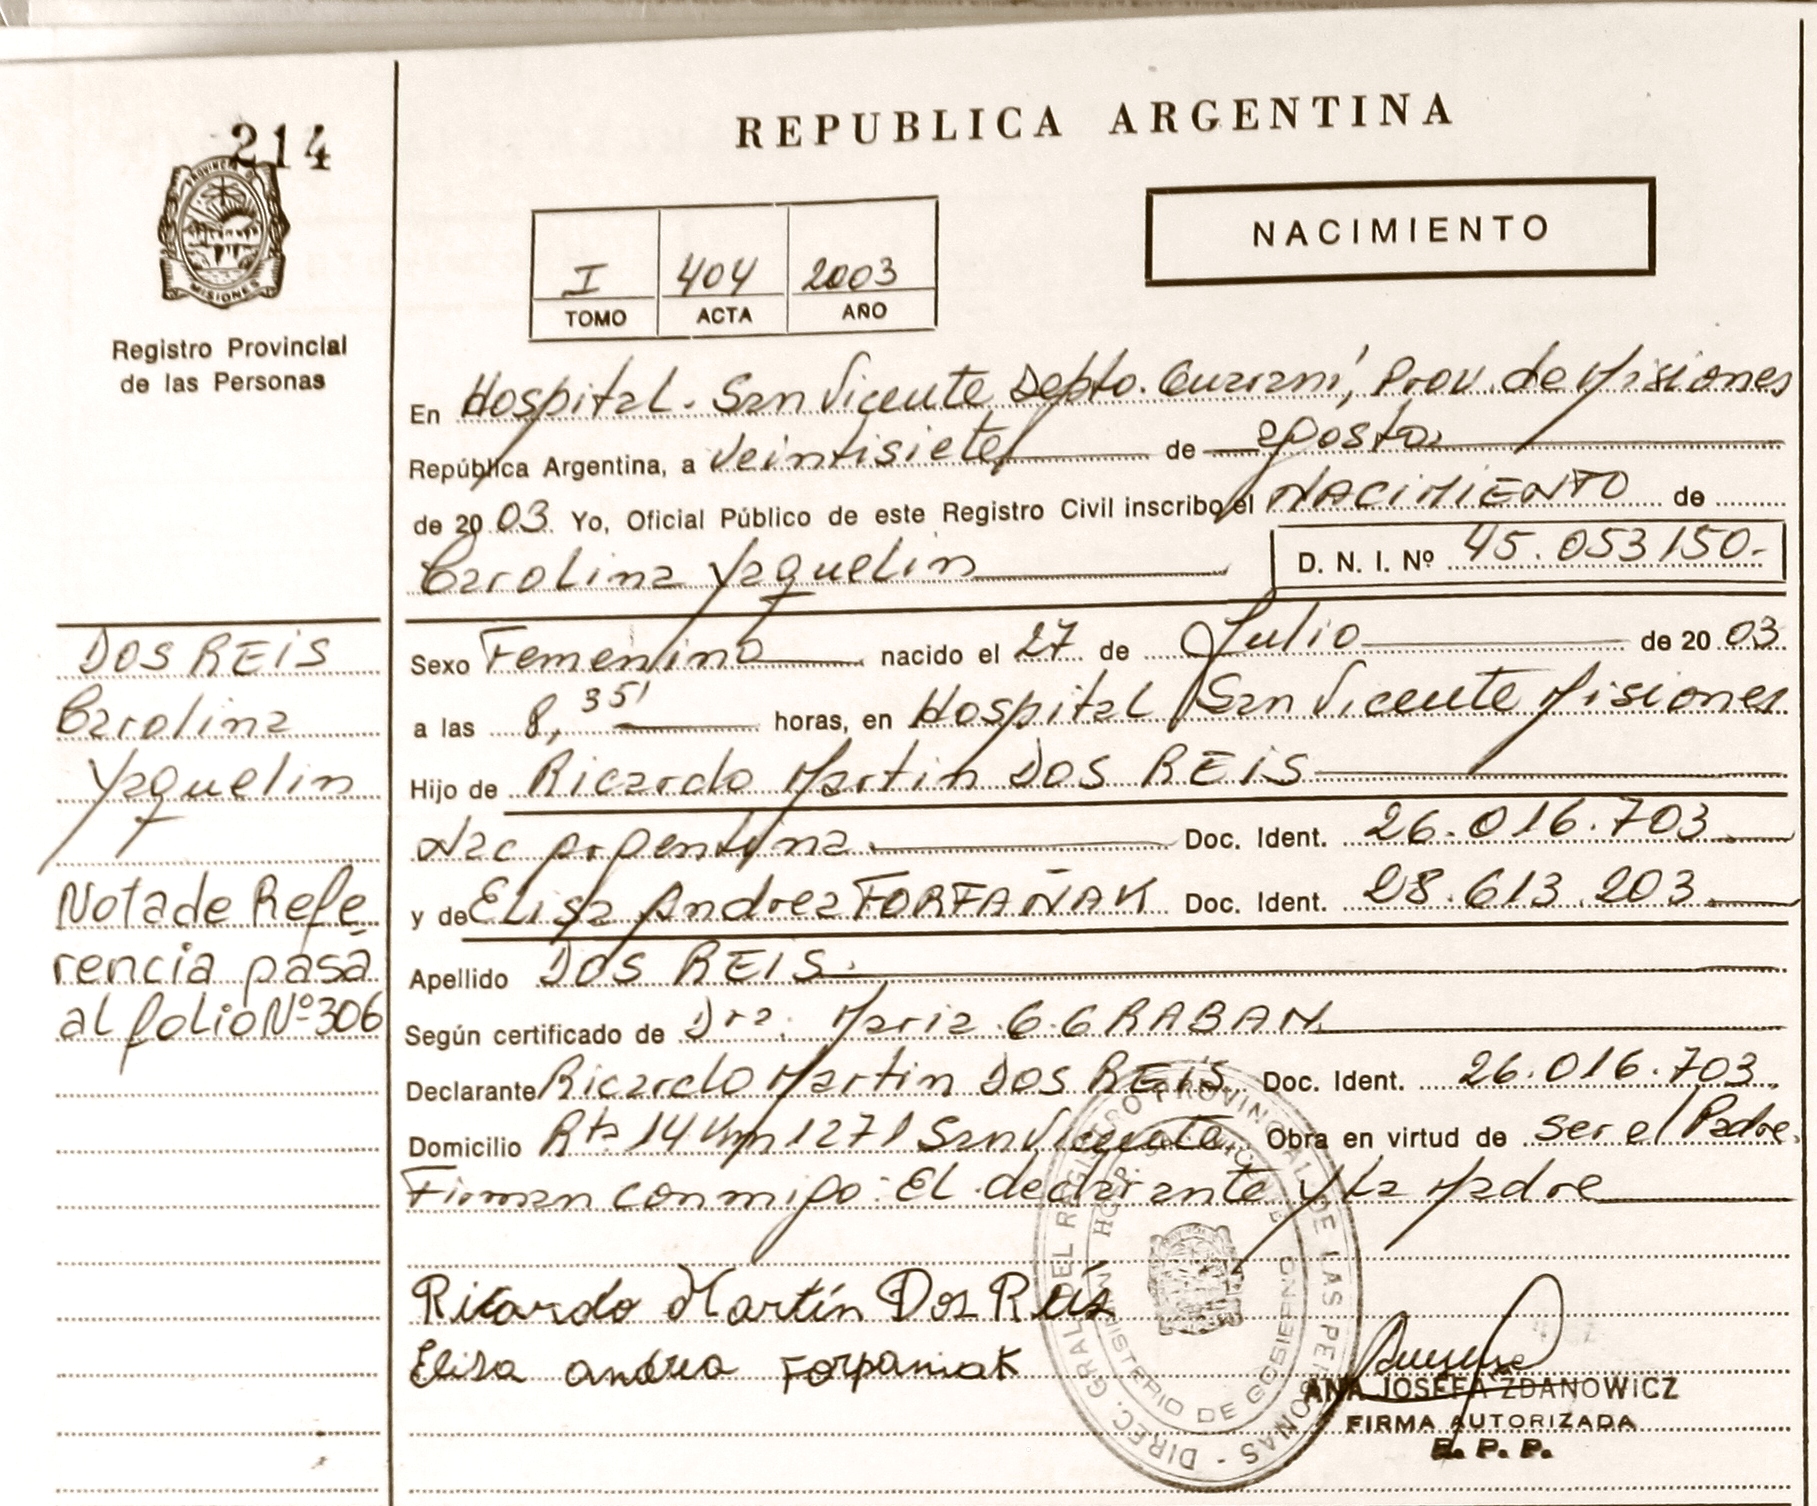 214
PROVINCIA D
MISIONES
Registro Provincial
de las Personas
REPUBLICA ARGENTINA
NACIMIENTO
I 404 2003
TOMO ACTA AÑO
En Hospital. San Vicente Depto. Guaraní, Prov. de Misiones
República Argentina, a veintisiete de agosto
de 2003 Yo, Oficial Público de este Registro Civil inscribo el NACIMIENTO de
Carolina Yaquelin D. N. I. Nº 45.053150.-
DOS REIS
Carolina
Yaquelin
Nota de Refe
rencia pasa
al folio Nº 306
Sexo Femenino nacido el 27 de Julio de 2003
a las 8,35' horas, en Hospital San Vicente Misiones
Hijo de Ricardo Martin DOS REIS
Nac argentina. Doc. Ident. 26.016.703
y de Elisa Andrea FORFAÑAK Doc. Ident. 28.613.203
Apellido DOS REIS.
Según certificado de Dra. Maria G. GRABAN
Declarante Ricardo Martin DOS REIS Doc. Ident. 26.016.703.
Domicilio Rta 14 Km 1271 San Vicente Obra en virtud de ser el Padre.
Firman conmigo: El declarante y La Madre
Ricardo Martín Dos Reis
Elisa andrea Forpaniak
DIREC. GRAL DEL REGISTRO PROVINCIAL DE LAS PERSONAS -
MINISTERIO DE GOBIERNO
ANA JOSEFA ZDANOWICZ
FIRMA AUTORIZADA
E. P. P.